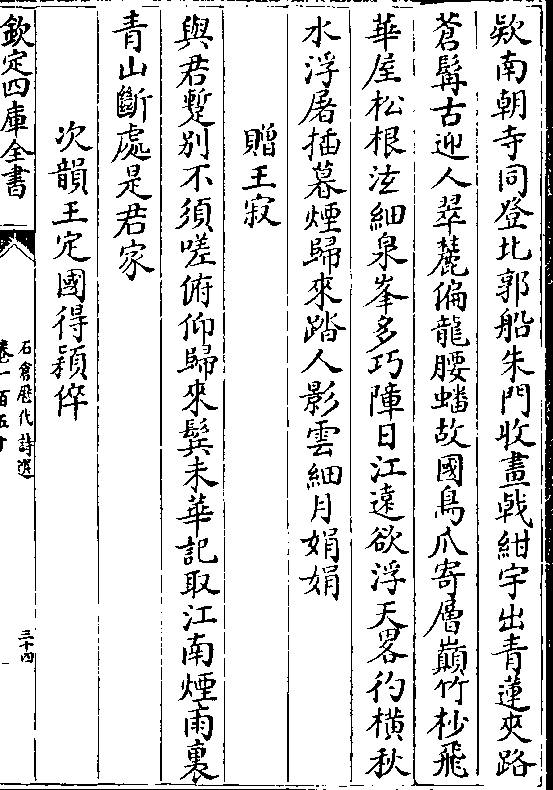 欵南朝寺同登北郭船朱門收畫戟紺宇出青蓮夾路
蒼髯古迎人翠麓偏龍腰蟠故國鳥爪寄層巔竹杪飛
華屋松根泫細泉峯多巧障日江遠欲浮天畧彴横秋
水浮屠插暮煙歸來踏人影雲細月娟娟
贈王寂
與君蹔别不須嗟俯仰歸來鬢未華記取江南煙雨裏
青山斷處是君家
次韻王定國得潁倅
欽定四庫全書
石倉歷代詩選
卷一百五十
三十四